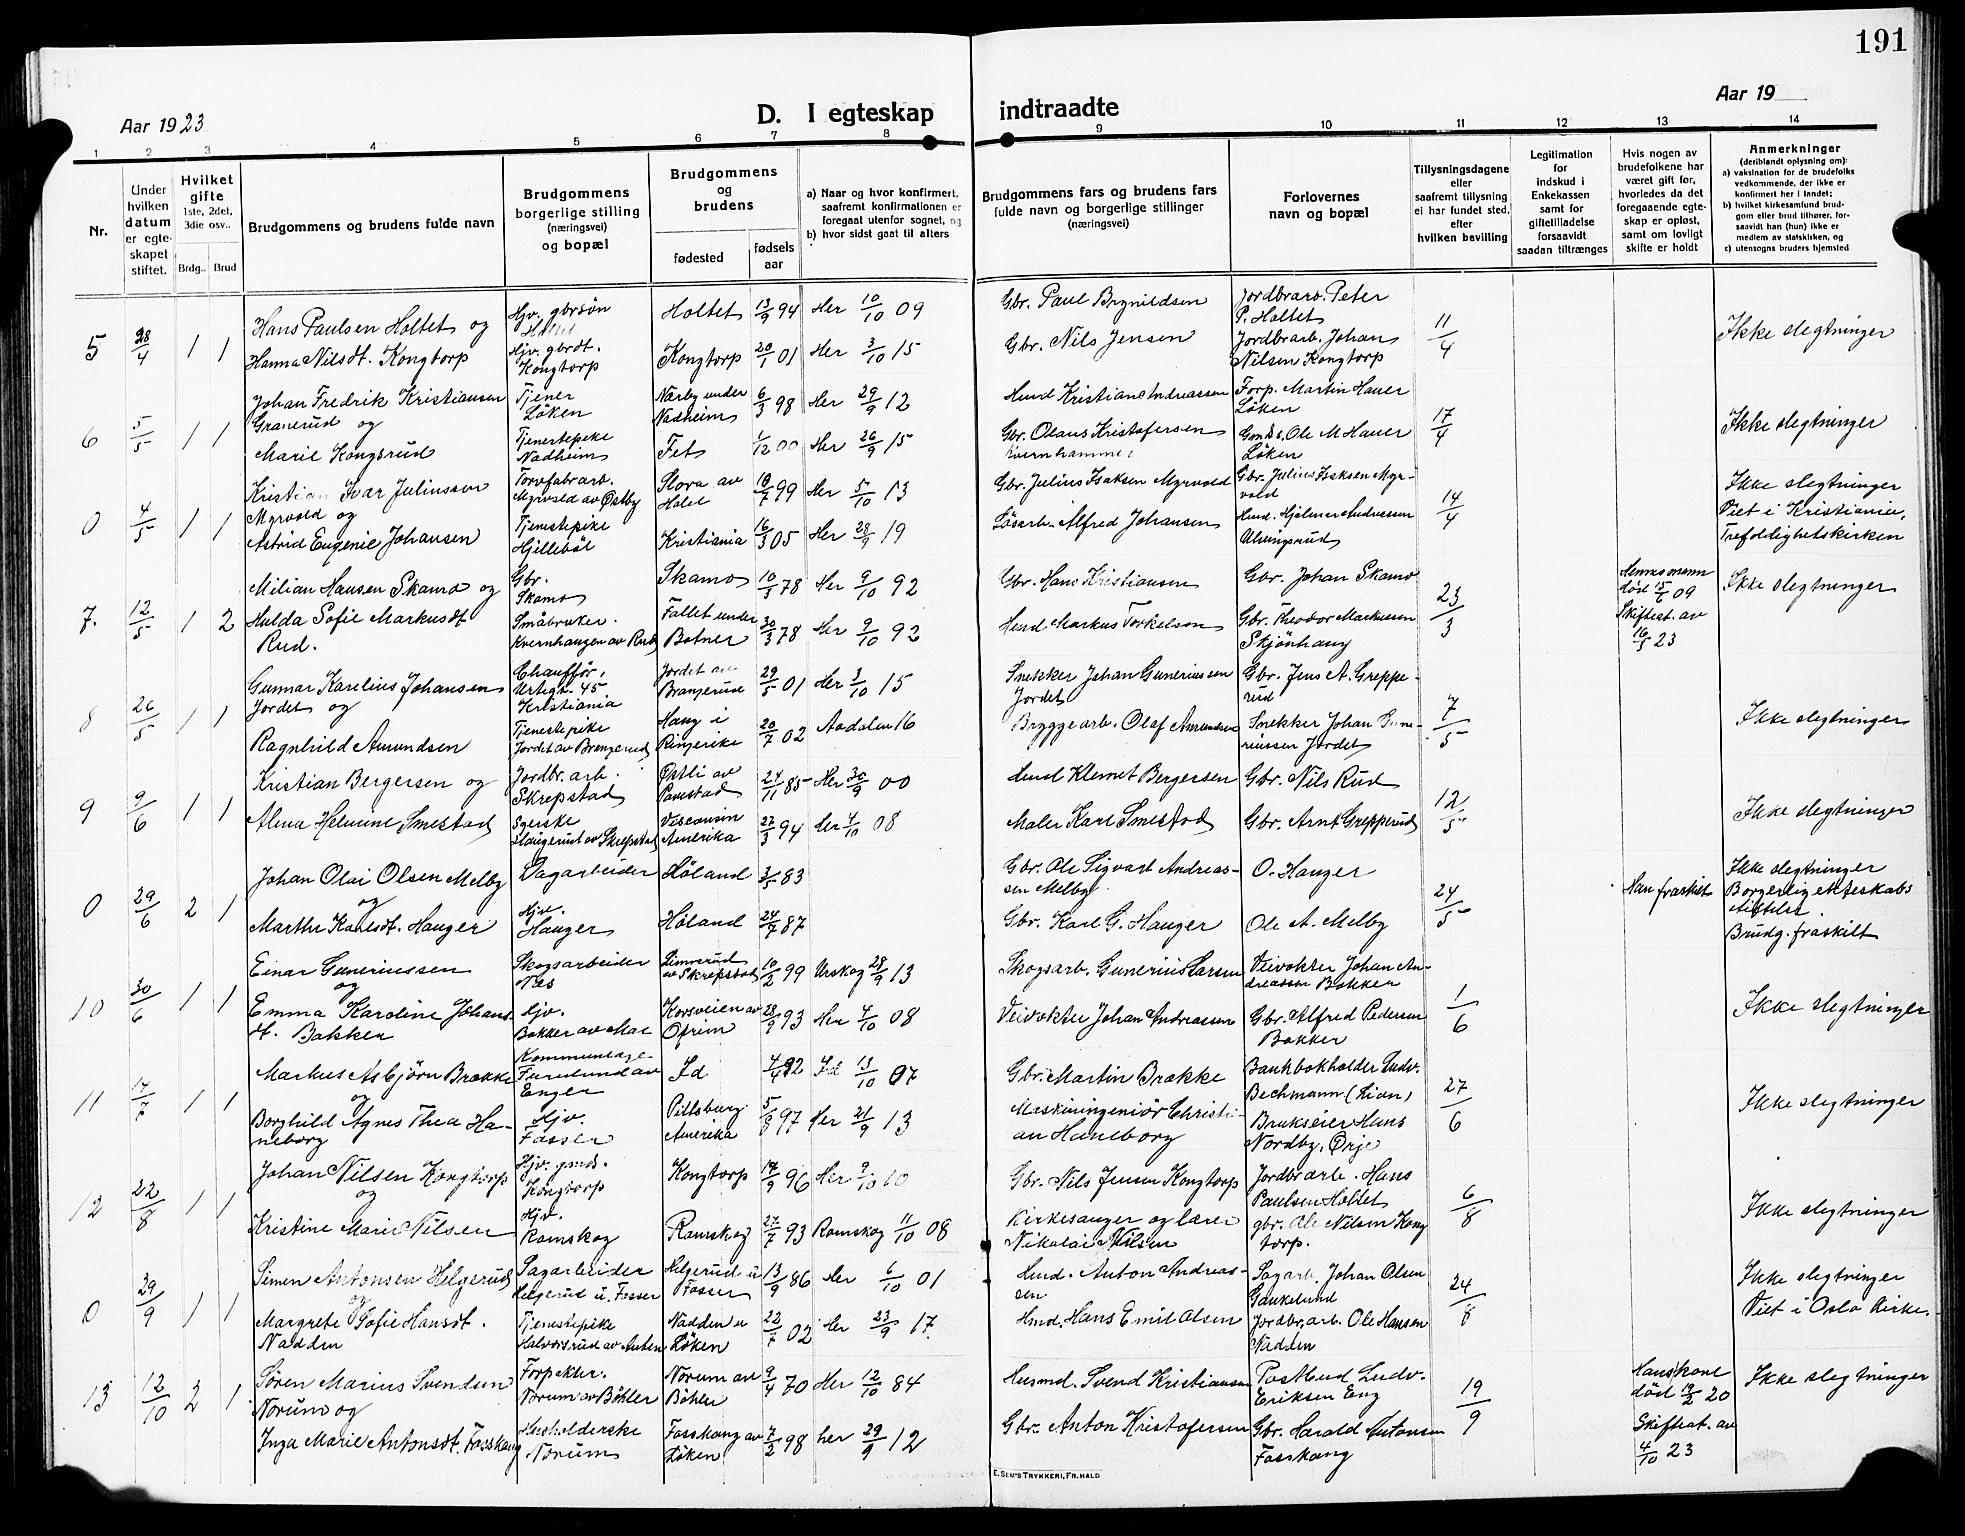 191
Aar 1923
D. I egteskap indtraadte
Aar 19
1 2 3 4 5 6 7 8 9 10 11 12 13 14
Nr.
Under hvilken datum er egteskapet stiftet.
Hvilket gifte 1ste, 2det, 3die osv..
Brdg.. Brud
Brudgommens og brudens fulde navn
Brudgommens borgerlige stilling (næringsvei) og bopæl
Brudgommens og brudens
fødested
fødsels aar
a) Naar og hvor konfirmert, saafremt konfirmationen er foregaat utenfor sognet, og
b) hvor sidst gaat til alters
Brudgommens fars og brudens fars fulde navn og borgerlige stillinger (næringsvei)
Forlovernes navn og bopæl
Tillysningsdagene eller saafremt tillysning ei har fundet sted, efter hvilken bevilling
Legitimation for indskud i Enkekassen samt for giftetilladelse forsaavidt saadan tiltrænges
Hvis nogen av brudefolkene har været gift før, hvorledes da det foregaaende egteskap er opløst, samt om lovligt skifte er holdt
Anmerkninger (deriblandt oplysning om):
a) vaksination for de brudefolks vedkommende, der ikke er konfirmert her i landet;
b) hvilket kirkesamfund brudgom eller brud tilhører, forsaavidt han (hun) ikke er medlem av statskirken, og
c) utensogns bruders hjemsted
5 28/4 1 1 Hans Paulsen Holtet og Hjv. gbrsøn Holtet Holtet 13/9 94 Her 10/10 09 Gbr. Paul Brynildsen Jordbrarb. Peter P. Holtet 11/4 Ikke slegtninger
Hanna Nilsdt. Kongtorp Hjv. gbrdt. Kongtorp Kongtorp 20/1 01 Her 3/10 15 Gbr. Nils Jensen Jordbrarb. Johan Nilsen Kongtorp
6 5/5 1 1 Johan Fredrik Kristiansen Granerud og Tjener Løken Nærby under Nadheim 6/3 98 Her 29/9 12 Husmd Kristian Andreassen Forp. Martin Hauer Løken 17/4 Ikke slegtninger
Marie Kongsrud Tjenestepike Nadheim Fet 1/12 00 Her 26/9 15 Gbr. Olaus Kristofersen Kvernhammer Ole M Hauer Løken
0 4/5 1 1 Kristian Ivar Juliussen Myrvold og Torvfabrarb. Myrvold av Østby Flora av 18/7 99 Her 5/10 13 Gbr. Julius Isaksen Myrvold Gbr. Julius Isaksen Myrvold 14/4 Ikke slegtninger
Viet i Kristiania, Trefoldighetskirken
Astrid Eugenie Johansen Tjenestepike Hjillebøl Kristiania 16/3 05 Her 28/9 19 Løsarb. Alfred Johansen Husmd. Hjalmar Andreassen
7. 12/5 1 2 Milian Hansen Skamo og Gbr. Skamo Skamo 10/3 78 Her 9/10 92 Gbr. Hans Kristiansen Gbr. Johan Skamo 23/3 Hennes mann død 15/6 09 Skifteat. av 16/3 23 Ikke slegtninger
Hulda Sofie Markusdt Rud. Småbruker. Kvernhaugen av Rud Fallet under Botner 30/3 78 Her 9/10 92 Husmd. Markus Torkelson Gbr. Theodor Markussen Skjønhaug
8 26/5 1 1 Gunnar Karelius Johansen Jordet og Chauffør, Urtegt. 45. Kristiania Jordet av Brangerud 29/5 01 Her 3/10 15 Snekker Johan Guneriussen Jordet Gbr. Jens A. Grepperud 7/5 Ikke slegtninger
Ragnhild Amundsen Tjenestepike Jordet av Brangerud Haug i Ringerike 20/7 02 Aadalen 16 Bryggearb. Olaf Amundsen Snekker Johan Guneriussen Jordet
9 9/6 1 1 Kristian Bergersen og Jordbr. arb. Skrepstad Østli av 24/11 85 Her 30/9 00 Husmd Klemet Bergersen Gbr. Nils Rud 12/5 Ikke slegtninger
Alma Helmine Smestad Syerske Slaugerud av Skrepstad Visconsin Amerika 27/3 94 Her 4/10 08 Maler Karl Smestad Gbr. Arnt Grepperud
0 29/6 2 1 Johan Olai Olsen Melby og Dagarbeider Høland 3/5 83 Gbr. Ole Sigvart Andreassen Melby O. Hauger 24/5 Han fraskilt Ikke slegtninger
Borgerlig ekteskabs stiftelse. Brudg. fraskilt
Marthe Karlsdt. Hauger Hjv. Hauger Høland 24/7 87 Gbr. Karl G. Hauger Ole A. Melby
10 30/6 1 1 Einar Guneriussen og Skogsarbeider Nes av Skrepstad 10/2 99 Urskog 28/9 13 Skogsarb. Gunerius Larsen Veivokter Johan Andreassen Bakker 1/6 Ikke slegtninger
Emma Karoline Johansdt. Bakken Hjv. Bakker av Mac Korsveien av Ofrim 28/9 93 Her 4/10 08 Veivokter Johan Andreassen Gbr. Alfred Pedersen Bakker
11 17/7 1 1 Markus Asbjørn Brække og Kommunelæge Furulund av Enger Id 4/4 92 Id 13/10 07 Gbr. Martin Brække Bankbokholder Ludv. Bechmann (Lian) 27/6 Ikke slegtninger
Borghild Agnes Thea Haneborg Hjv. Fosser Pittsburg Amerika 5/8 97 Her 21/9 13 Maskiningeniør Christian Haneborg Brukseier Hans Nordby, Ørje
12 22/8 1 1 Johan Nilsen Kongtorp og Hjv. Kongtorp Kongtorp 17/9 96 Her 9/10 10 Gbr. Nils Jensen Kongtorp Jordbrarb. Hans Paulsen Holtet 6/8 Ikke slegtninger
Kristine Marie Nilsen Hjv. Rømskog Rømskog 27/7 93 Rømskog 11/10 08 Kirkesanger og lærer Nikolai Nilsen gbr. Ole Nilsen Kongtorp.
0 29/9 1 1 Simen Antonsen Helgerud og Sagarbeider Helgerud u. Fosser Helgerud u Fosser 13/9 86 Her 6/10 01 Husmd. Anton Andreassen Sagarb. Johan Olsen Gaukelund 24/8 Ikke slegtninger
Viet i Oslo Kirke.
Margrete Sofie Hansdt. Nadden Tjenestepike Halvorsrud av Auten Nadden u Løken 22/7 02 Her 23/9 17. Husmd. Hans Emil Olsen Jordbrarb. Ole Hansen Nadden
13 12/10 2 1 Søren Marius Svendsen Norum og Forpakter. Norum av Bøhler Norum av Bøhler 9/4 70 Her 12/10 84 Husmd. Svend Kristiansen Postbud Ludv. Eriksen Eng 19/9 Hans kone død 12/2 20 Skifteat. av 4/10 23 Ikke slegtninger
Inga Marie Antonsdt. Fosskaug Husholderske Norum Fosskaug av Løken 7/2 98 her 29/9 12 Gbr. Anton Kristofersen Gbr. Harald Antonsen Fosskaug
E. SEM'S TRYKKERI, FR.HALD